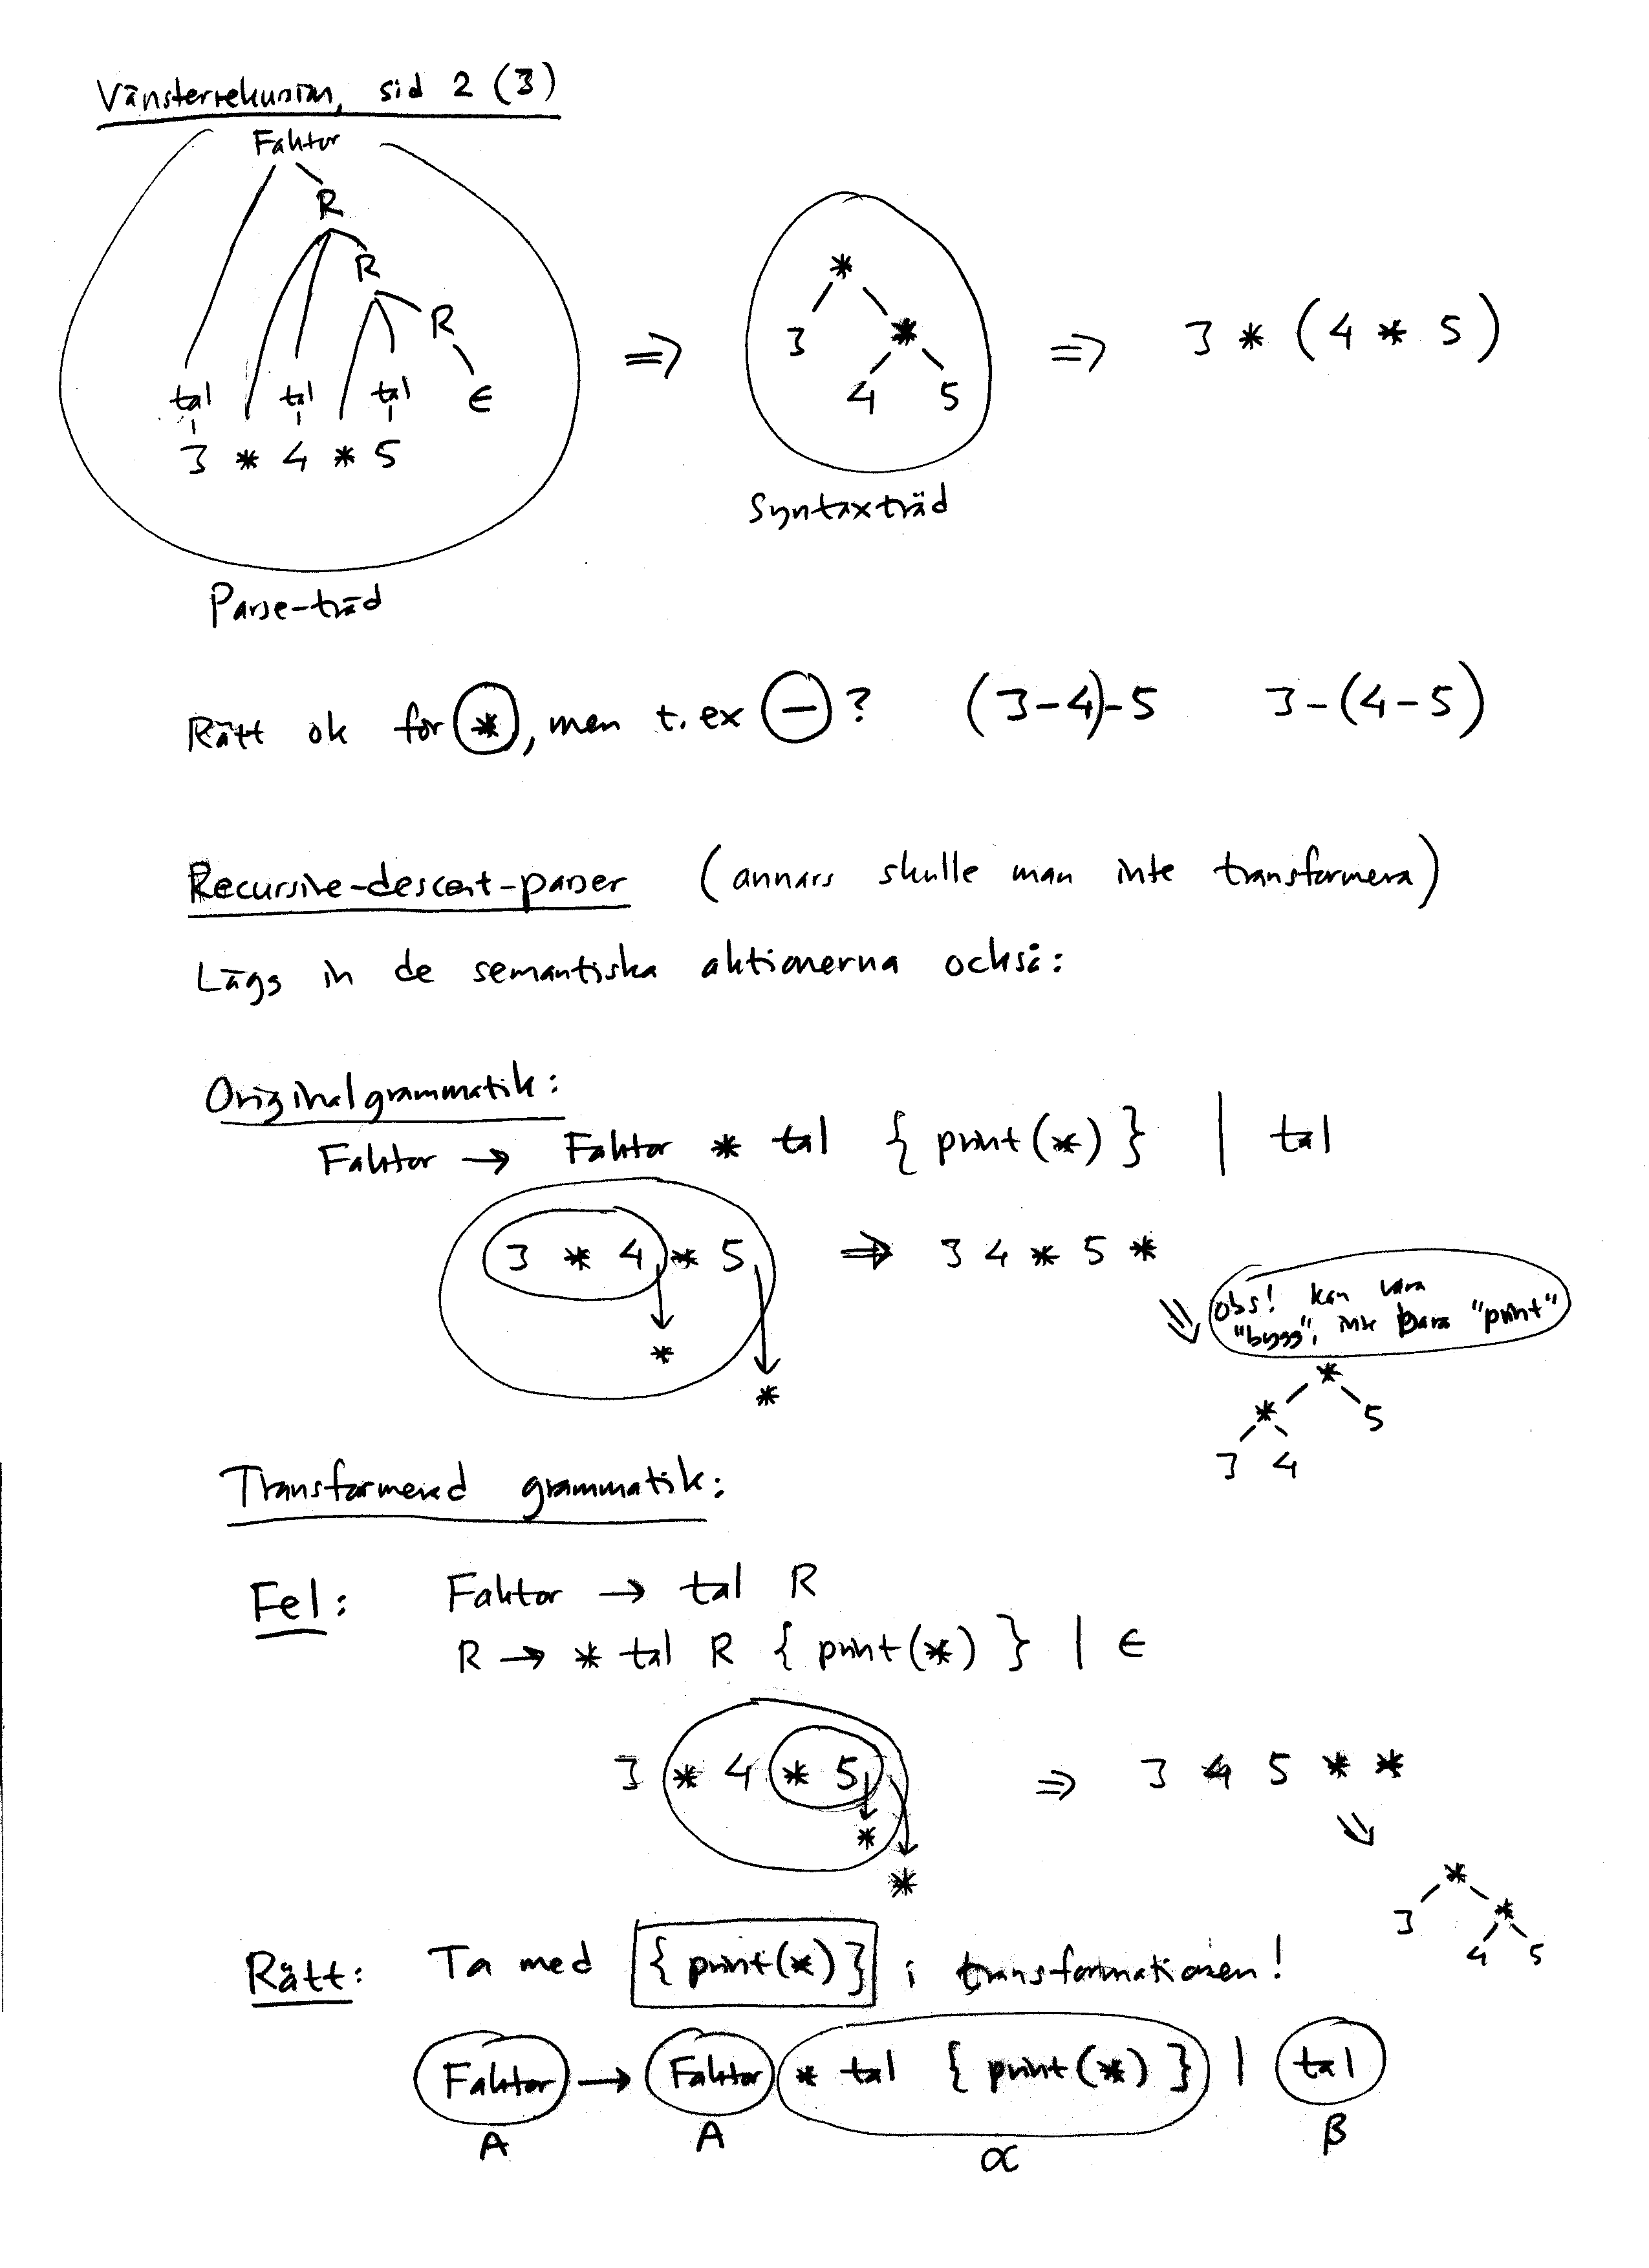 Vänsterrekursion, sid 2 (3)
Faktor
R
R
R
tal tal tal ε
3 * 4 * 5
Parse-träd
⇒
*
3 *
4 5
Syntaxträd
⇒ 3 * (4 * 5)
Rätt ok för *, men t.ex − ? (3-4)-5 3-(4-5)
Recursive-descent-parser (annars skulle man inte transformera)
Lägg in de semantiska aktionerna också:
Originalgrammatik:
Faktor → Faktor * tal { print(*) } | tal
3 * 4 * 5 ⇒ 3 4 * 5 *
*
*
⇓ Obs! kan vara
"bygg", inte bara "print"
*
* 5
3 4
Transformerad grammatik:
Fel: Faktor → tal R
R → * tal R { print(*) } | ε
3 * 4 * 5 ⇒ 3 4 5 * *
*
*
⇓
*
3 *
4 5
Rätt: Ta med { print(*) } i transformationen!
Faktor → Faktor * tal { print(*) } | tal
A A α β